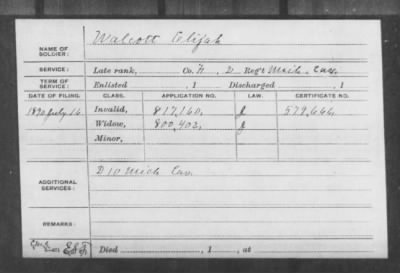 NAME OF SOLDIER: Walcott Elijah
SERVICE: Late rank, Co. H, D Reg't Mich. Cav.
TERM OF SERVICE: Enlisted , 1 Discharged , 1
DATE OF FILING. CLASS. APPLICATION NO. LAW. CERTIFICATE NO.
1890 July 16 Invalid, 817,160, J 579,666,
Widow, 800,402, J
Minor,
ADDITIONAL SERVICES: D 10 Mich Cav.
REMARKS:
Died , 1 , at